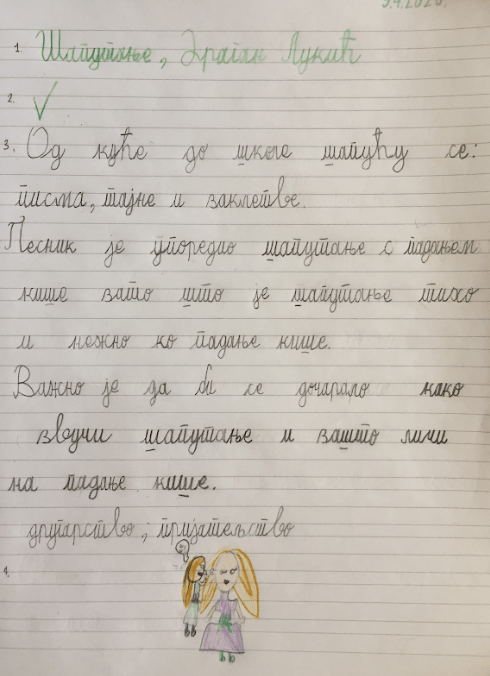 9.4.2020.
1. Шапутање, Драган Лукић
2. ✓
3. Од куће до школе шапућу се:
писма, тајне и заклетве.
Песник је упоредио шапутање с падањем
кише зато што је шапутање тихо
и нежно ко падање кише.
Важно је да би се дочарало како
звучи шапутање и зашто личи
на падање кише.
другарство, пријатељство
4.